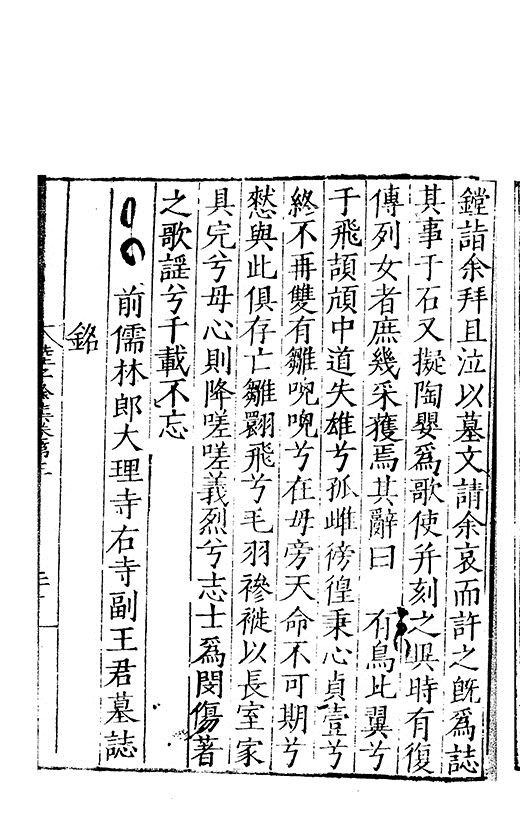 鏜詣余拜且泣以墓文請余哀而許之旣爲誌
其事于石又擬陶嬰爲歌使幷刻之㫷時有復
傳列女者庶幾采獲焉其辭曰　有鳥比翼兮
于飛頡頏中道失雄兮孤雌徬徨秉心貞壹兮
終不再雙有雛唲唲兮在母旁天命不可期兮
愁與此俱存亡雛翾飛兮毛羽襂褷以長室家
具完兮母心則降嗟嗟義烈兮志士爲閔傷著
之歌謡兮千載不忘
前儒林郎大理寺右寺副王君墓誌
銘
陸子餘集卷第三